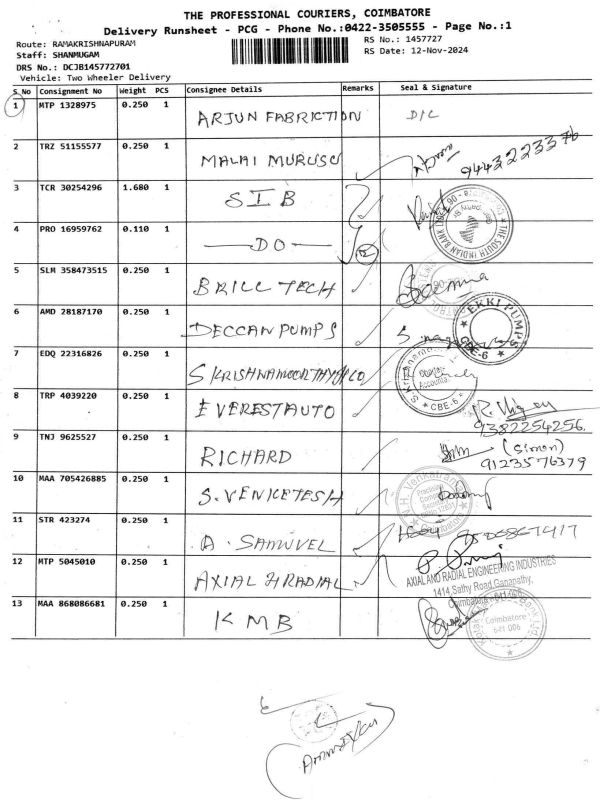 THE PROFESSIONAL COURIERS, COIMBATORE
Delivery Runsheet - PCG - Phone No.:0422-3505555 - Page No.:1
Route: RAMAKRISHNAPURAM
RS No.: 1457727
Staff: SHANMUGAM
RS Date: 12-Nov-2024
DRS No.: DCJB145772701
Vehicle: Two Wheeler Delivery
S No Consignment No Weight PCS Consignee Details Remarks Seal & Signature
1 MTP 1328975 0.250 1 ARJUN FABRICTION D/L
2 TRZ 51155577 0.250 1 MALAI MURUSU 9443223376
3 TCR 30254296 1.680 1 SIB
THE SOUTH INDIAN BANK
4 PRO 16959762 0.110 1 DO
5 SLM 358473515 0.250 1 BRILL TECH
6 AMD 28187170 0.250 1 DECCAN PUMPS
EKKI PUMPS
CBE-6
7 EDQ 22316826 0.250 1 S KRISHNAMOORTHY & CO
CBE-6
8 TRP 4039220 0.250 1 EVEREST AUTO
9382254256
9 TNJ 9625527 0.250 1 RICHARD (Simon)
9123576379
10 MAA 705426885 0.250 1 S. VENKETESH
11 STR 423274 0.250 1 A. SAMUVEL
12 MTP 5045010 0.250 1 AXIAL & RADIAL
AXIAL AND RADIAL ENGINEERING INDUSTRIES
1414 Sathy Road Ganapathy,
13 MAA 868086681 0.250 1 KMB
Coimbatore
641 006